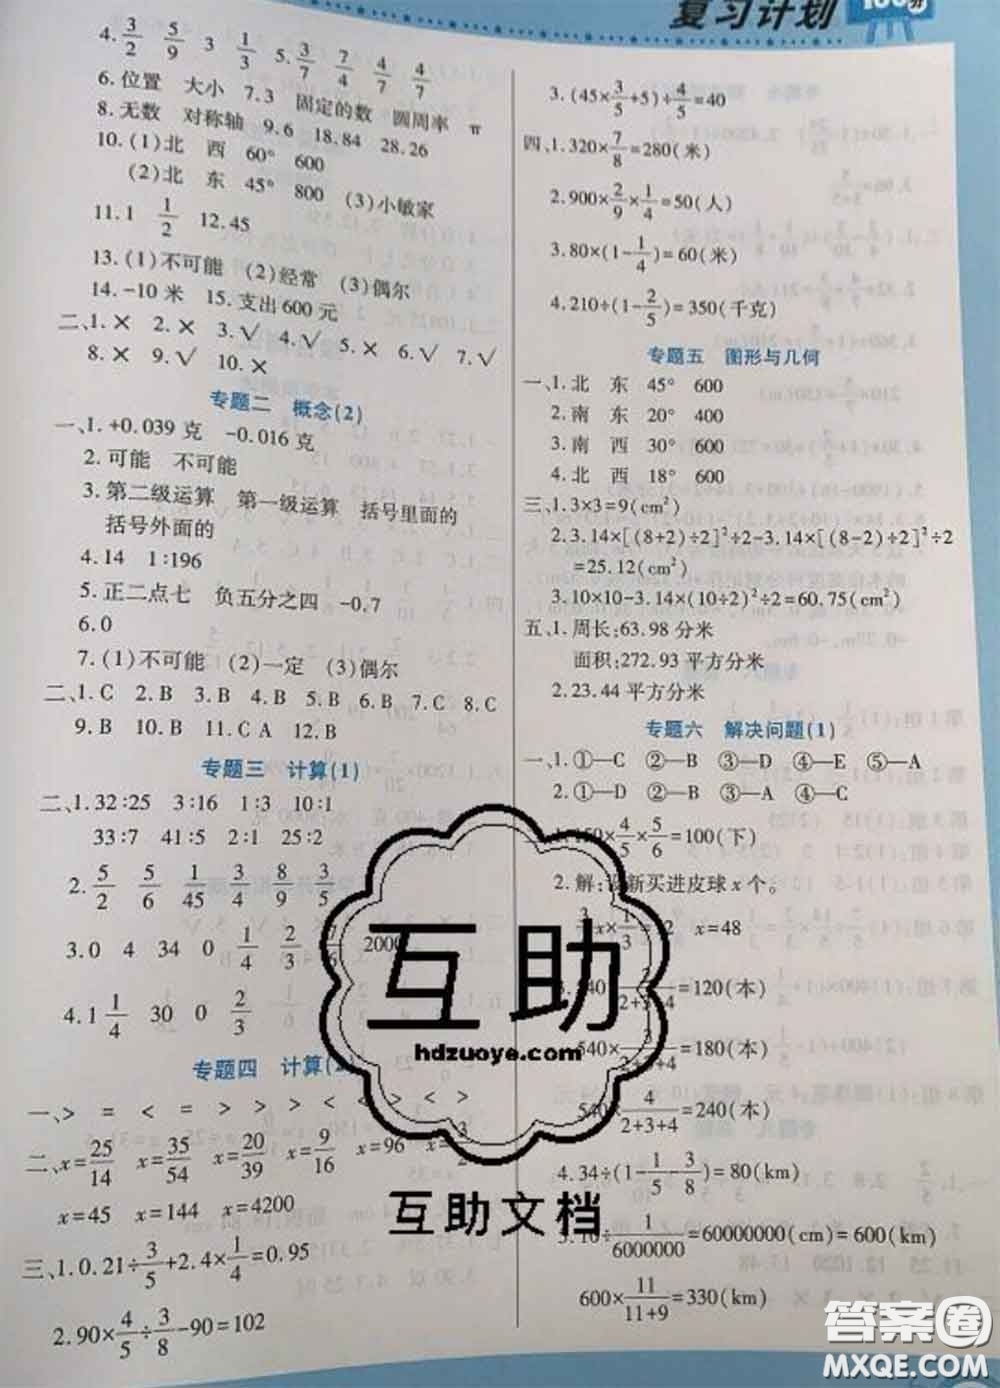 复习计划
100分
4. 3/2 5/9 3 1/3 5. 3/7 7/4 4/7 4/7
6.位置 大小 7.3 固定的数 圆周率 π
8.无数 对称轴 9.6 18.84 28.26
10.(1)北 西 60° 600
(2)北 东 45° 800 (3)小敏家
11.1 1/2 12.45
13.(1)不可能 (2)经常 (3)偶尔
14.-10米 15.支出600元
二、1.× 2.× 3.√ 4.√ 5.× 6.√ 7.√
8.× 9.√ 10.×
专题二 概念(2)
一、1.+0.039克 -0.016克
2.可能 不可能
3.第二级运算 第一级运算 括号里面的
括号外面的
4.14 1:196
5.正二点七 负五分之四 -0.7
6.0
7.(1)不可能 (2)一定 (3)偶尔
二、1.C 2.B 3.B 4.B 5.B 6.B 7.C 8.C
9.B 10.B 11.C A 12.B
专题三 计算(1)
二、1.32:25 3:16 1:3 10:1
33:7 41:5 2:1 25:2
2. 5/2 5/6 1/45 3/4 8/9 3/5
3.0 4 34 0 1/4 2/3 2000
4.1 1/4 30 0 2/3
专题四 计算(2)
一、> = < = > > > < < > < >
二、x=25/14 x=35/54 x=20/39 x=9/16 x=96 x=3/2
x=45 x=144 x=4200
三、1.0.21÷3/5+2.4×1/4=0.95
2.90×4/5÷3/8-90=102
3.(45×3/5+5)÷4/5=40
四、1.320×7/8=280(米)
2.900×2/9×1/4=50(人)
3.80×(1-1/4)=60(米)
4.210÷(1-2/5)=350(千克)
专题五 图形与几何
一、1.北 东 45° 600
2.南 东 20° 400
3.南 西 30° 600
4.北 西 18° 600
三、1.3×3=9(cm²)
2.3.14×[(8+2)÷2]²÷2-3.14×[(8-2)÷2]²÷2
=25.12(cm²)
3.10×10-3.14×(10÷2)²÷2=60.75(cm²)
五、1.周长:63.98分米
面积:272.93平方分米
2.23.44平方分米
专题六 解决问题(1)
一、1.①—C ②—B ③—D ④—E ⑤—A
2.①—D ②—B ③—A ④—C
150×4/5×5/6=100(下)
2.解:设新买进皮球x个。
x×1/3= 2 x=48
3.540× /2+3+4=120(本)
540×3/2+3+4=180(本)
540×4/2+3+4=240(本)
4.34÷(1-1/5-3/8)=80(km)
5.10÷1/6000000=60000000(cm)=600(km)
600×11/11+9=330(km)
互助
hdzuoye.com
互助文档
答案圈
MXQE.COM